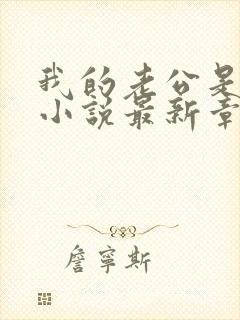 我的老公是
小说最新章
詹寧斯